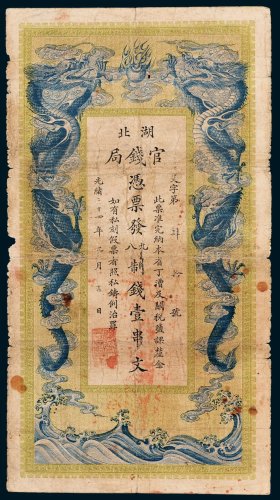 湖北
官錢局
字第肆拾號
此票准完納本省丁漕及關稅鹽課釐金
憑票發九八制錢壹串文
如有私刻假票者照私鑄例治罪
光緒二十四年月日